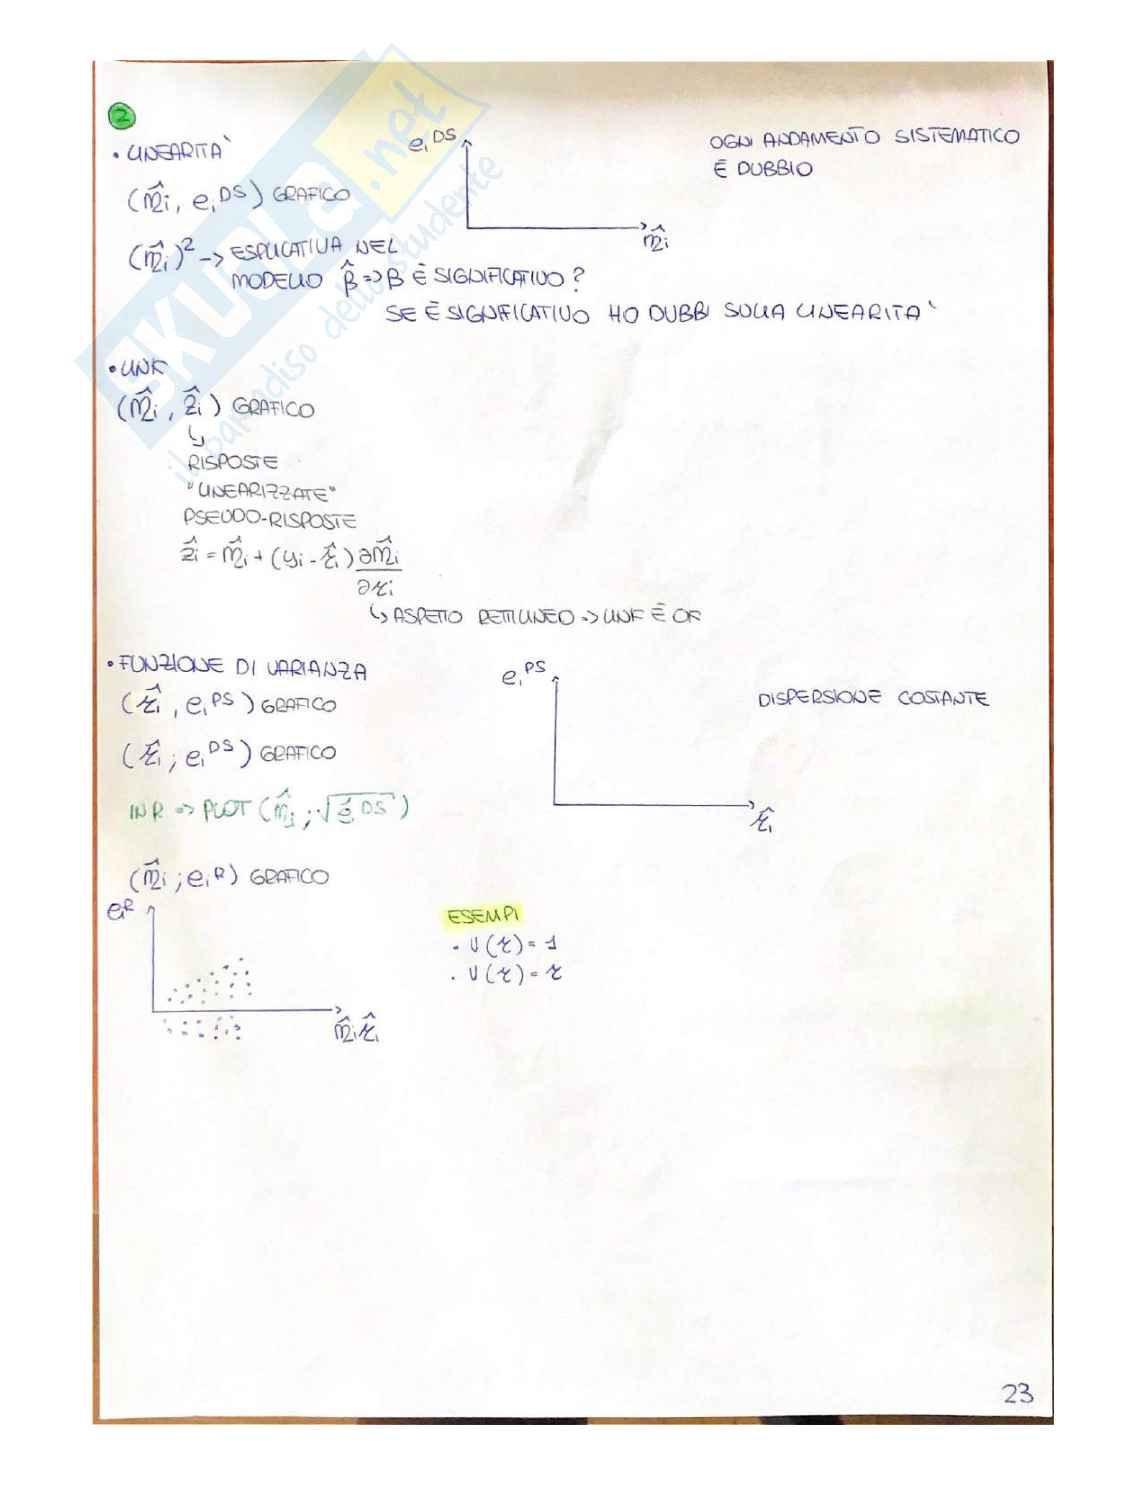 2
• LINEARITÀ
(η̂i, eiDS) GRAFICO
eiDS
η̂i
OGNI ANDAMENTO SISTEMATICO
È DUBBIO
(η̂i)² -> ESPLICATIVA NEL
MODELLO β̂ => β È SIGNIFICATIVO?
SE È SIGNIFICATIVO HO DUBBI SULLA LINEARITÀ
• LINK
(η̂i, ẑi) GRAFICO
↳
RISPOSTE
"LINEARIZZATE"
PSEUDO-RISPOSTE
ẑi = η̂i + (yi - μ̂i) ∂η̂i / ∂μi
↳ ASPETTO RETTILINEO => LINK È OK
• FUNZIONE DI VARIANZA
(μ̂i, eiPS) GRAFICO
(μ̂i; eiDS) GRAFICO
IN R => PLOT (η̂i; √eiDS)
eiPS
μ̂i
DISPERSIONE COSTANTE
(η̂i; eiR) GRAFICO
eiR
η̂i μ̂i
ESEMPI
• V(μ) = 1
• V(μ) = μ
23
SKUOLA.net
il paradiso dello studente